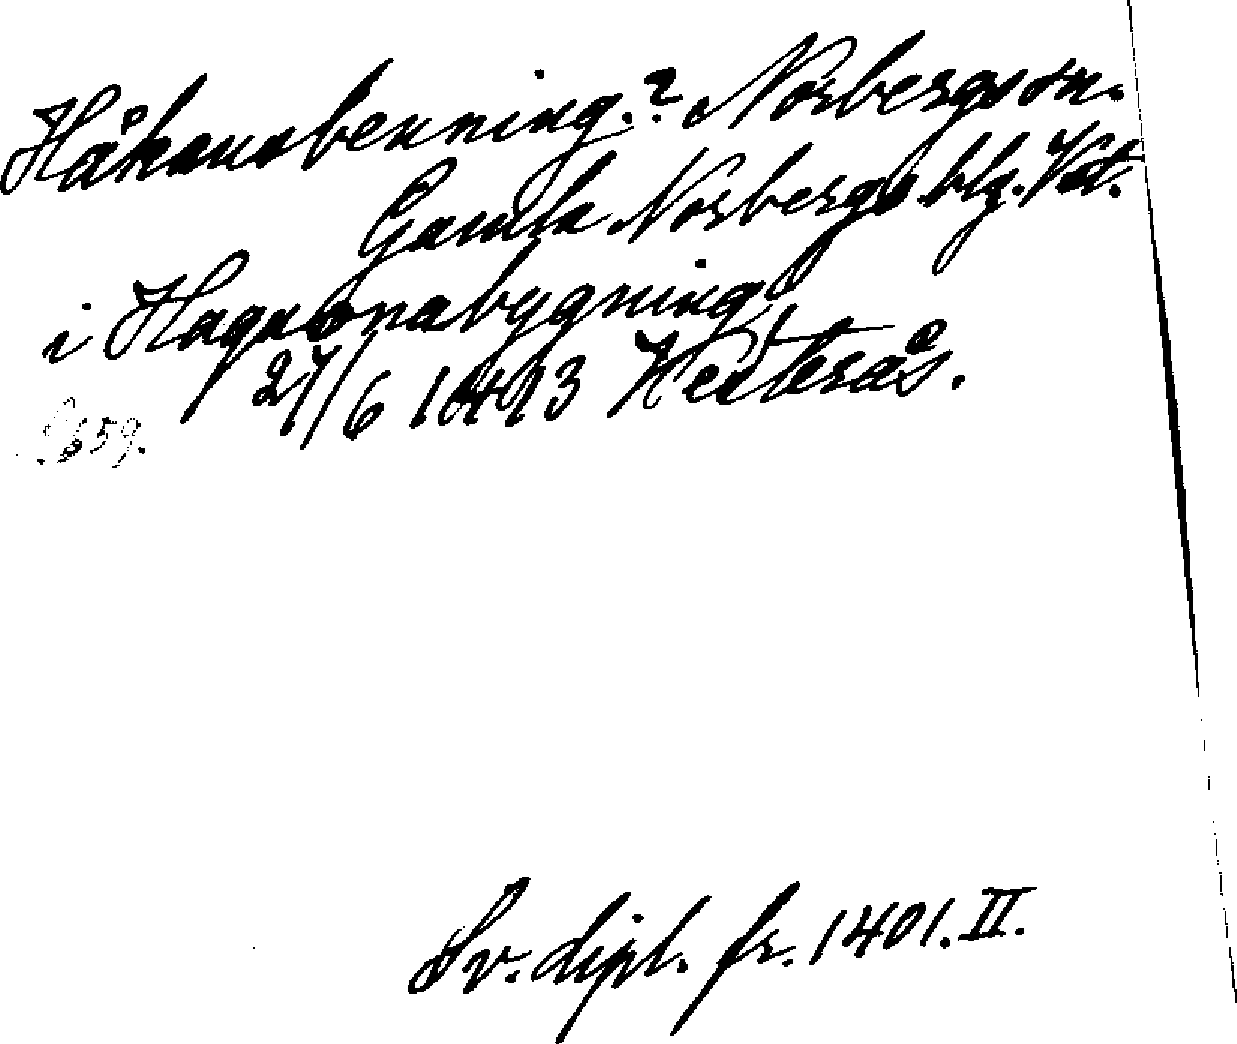 Håkansbenning.? Norbergs sn.
Gamla Norbergs blg. Vstm.
i Haquonabygning
27/6 1413 Västerås.
S. 659.
Sv. dipl. fr. 1401. II.